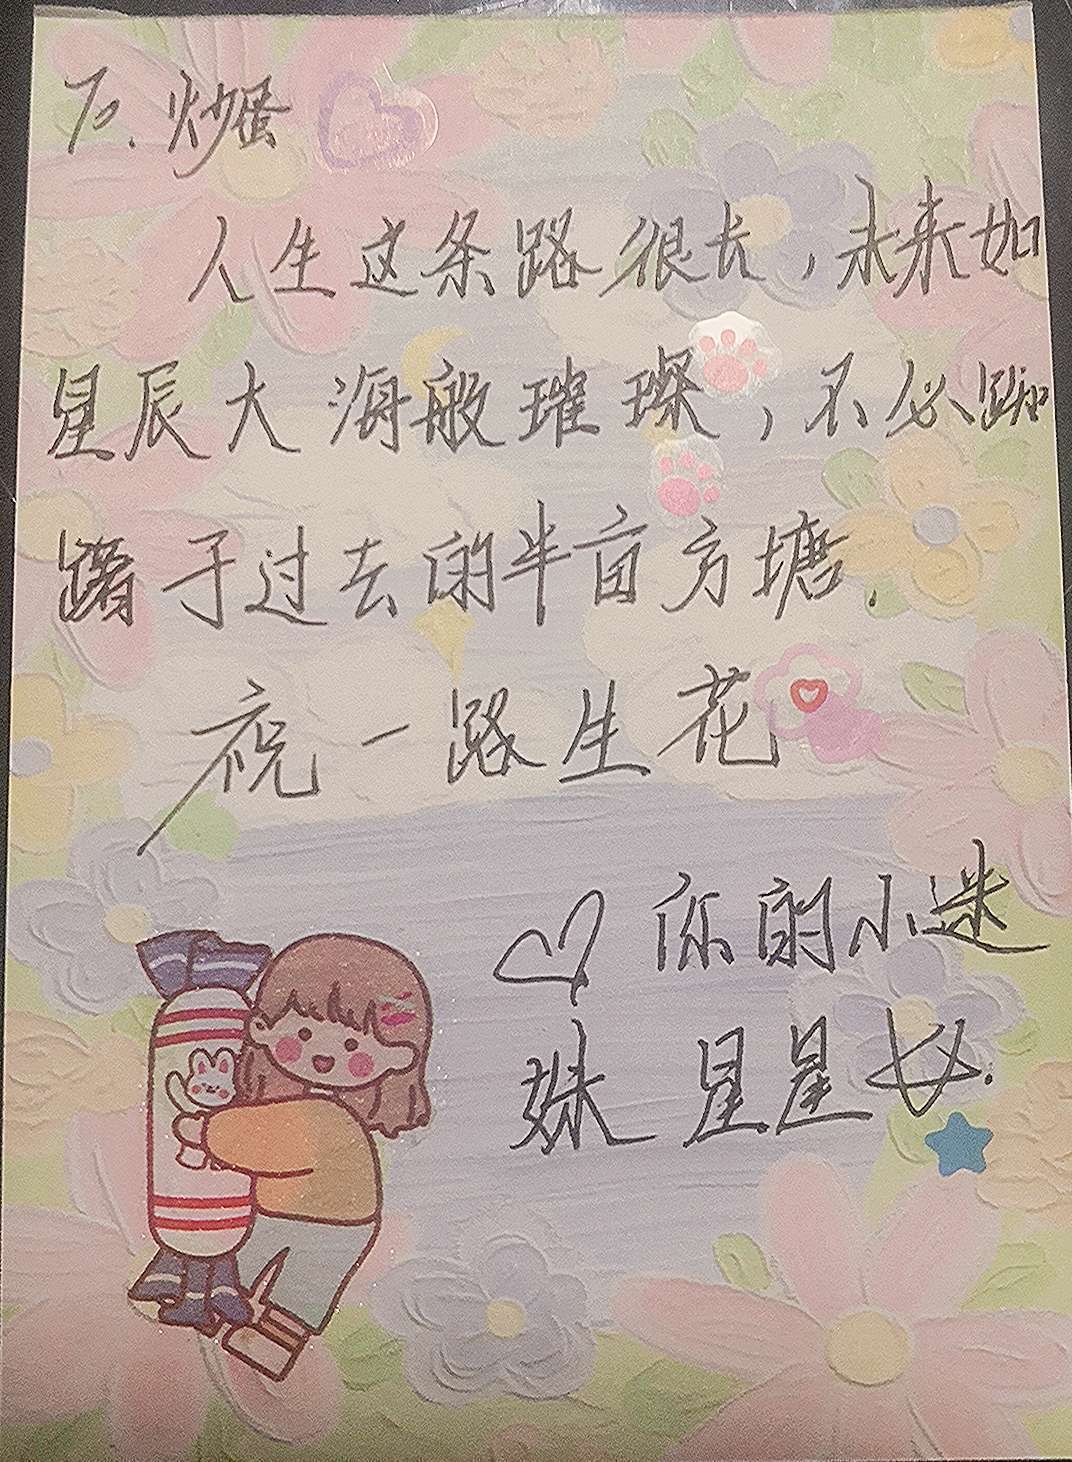 To. 炒蚤
人生这条路很长，未来如
星辰大海般璀璨，不必踟
躇于过去的半亩方塘.
祝一路生花
你的小迷
妹 星星